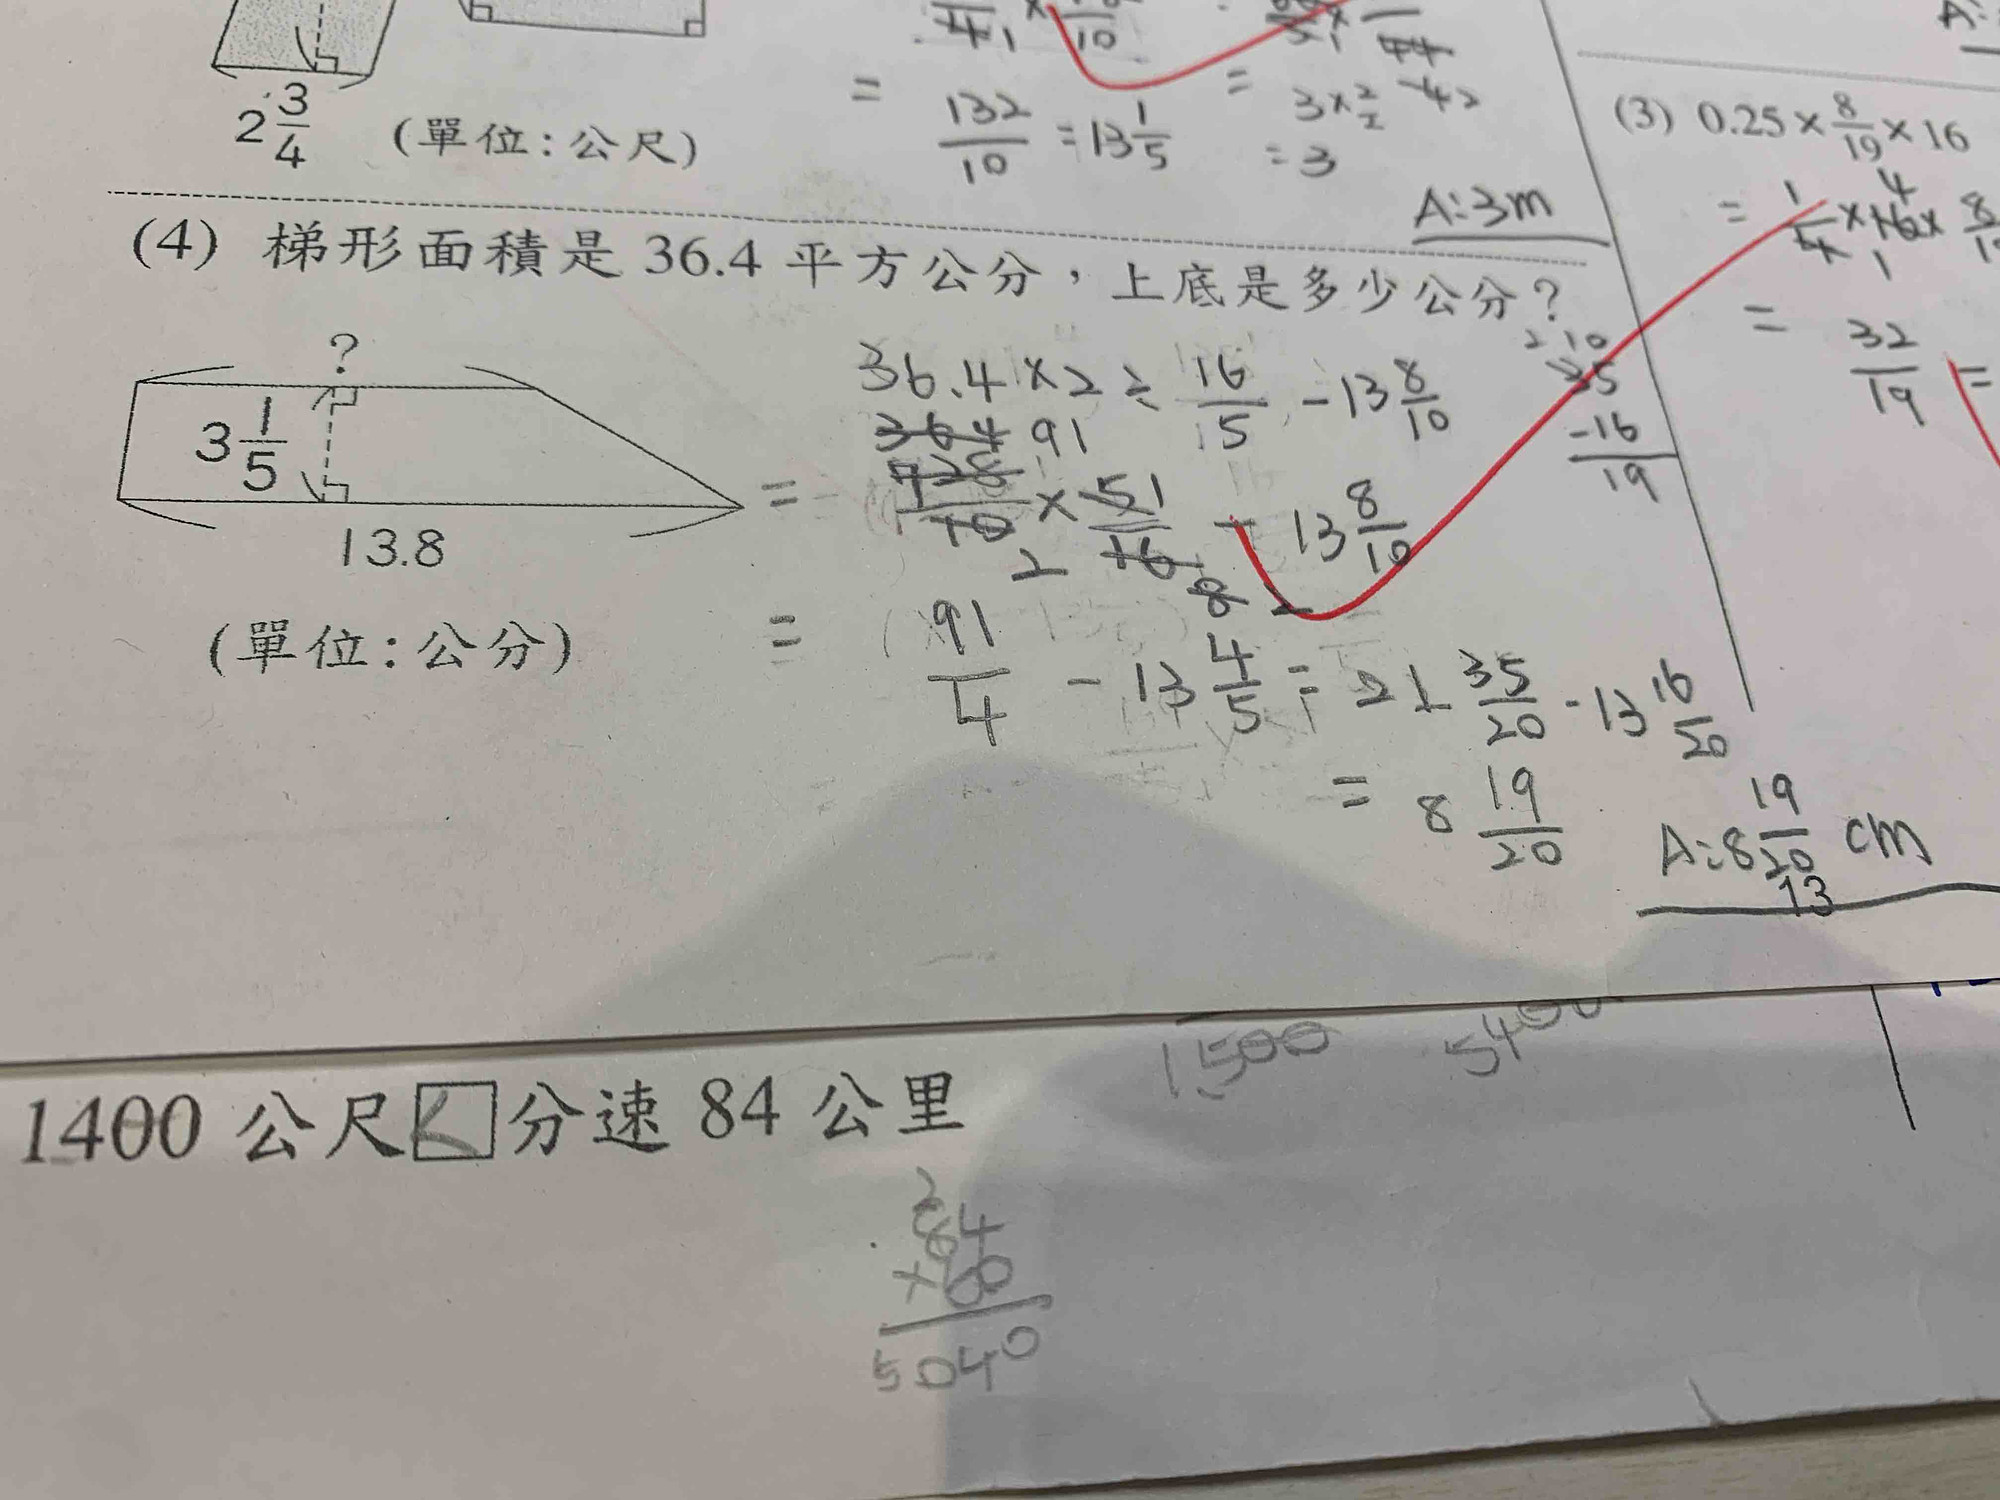 2 3/4
(單位:公尺)
= 132/10 = 13 1/5
= 3 × 2/2
= 3
A:3m
(3) 0.25 × 8/19 × 16
= 1/4 × 16 ×
= 32/19 =
(4) 梯形面積是 36.4 平方公分，上底是多少公分？
?
3 1/5
13.8
(單位:公分)
36.4 × 2 ÷ 16/5 - 13 8/10
364 91
= 728/10 × 51/16 - 13 8/10
2 8
= 91/4 - 13 4/5 = 21 35/20 - 13 16/20
= 8 19/20
35
-16
19
A:8 19/20 cm
13
1500
1400 公尺 < 分速 84 公里
2
84
×60
5040